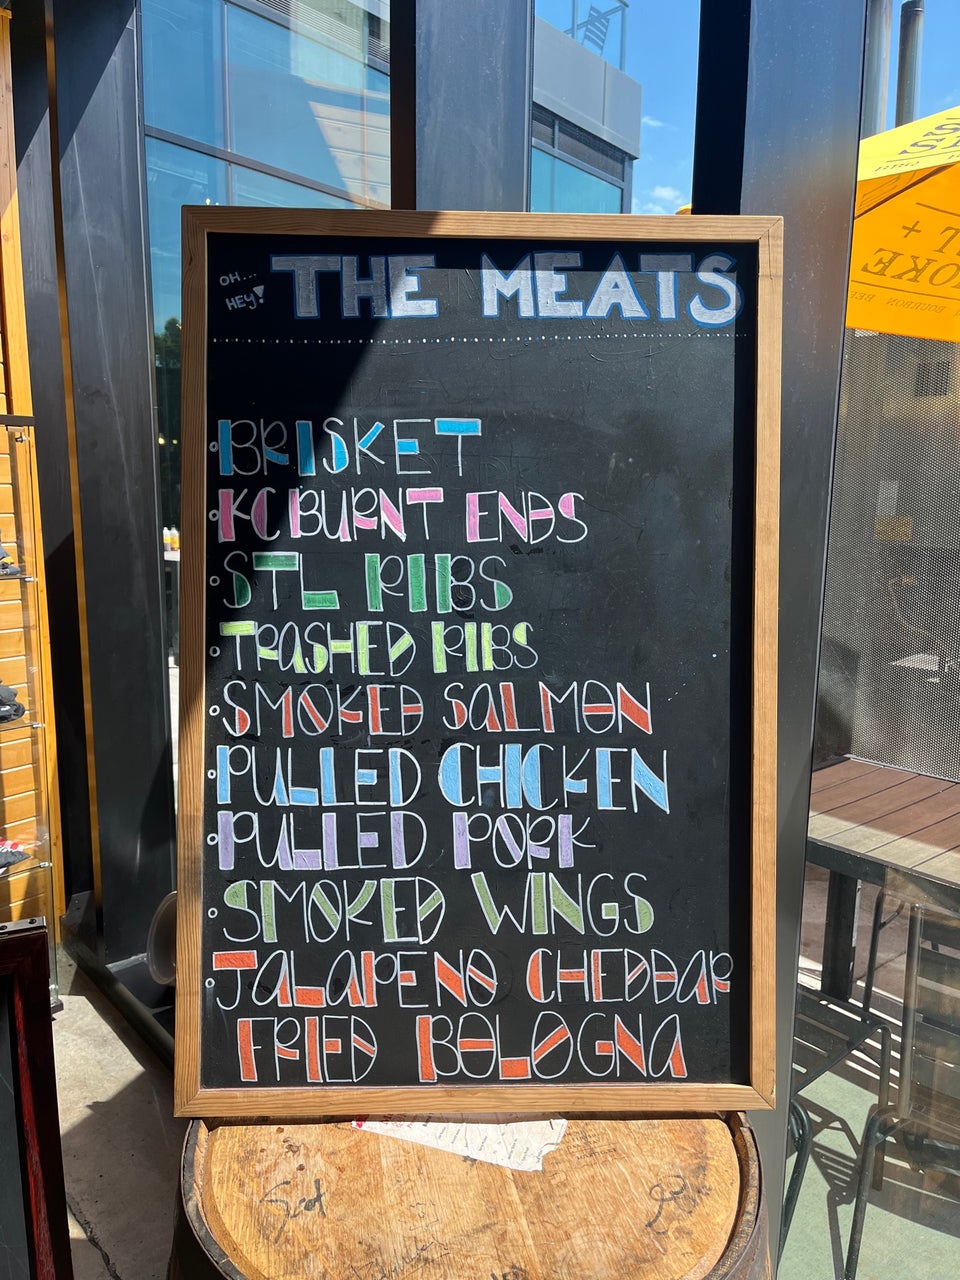 OH...
HEY!
THE MEATS
BRISKET
KC BURNT ENDS
STL RIBS
TRASHED RIBS
SMOKED SALMON
PULLED CHICKEN
PULLED PORK
SMOKED WINGS
JALAPENO CHEDDAR
FRIED BOLOGNA